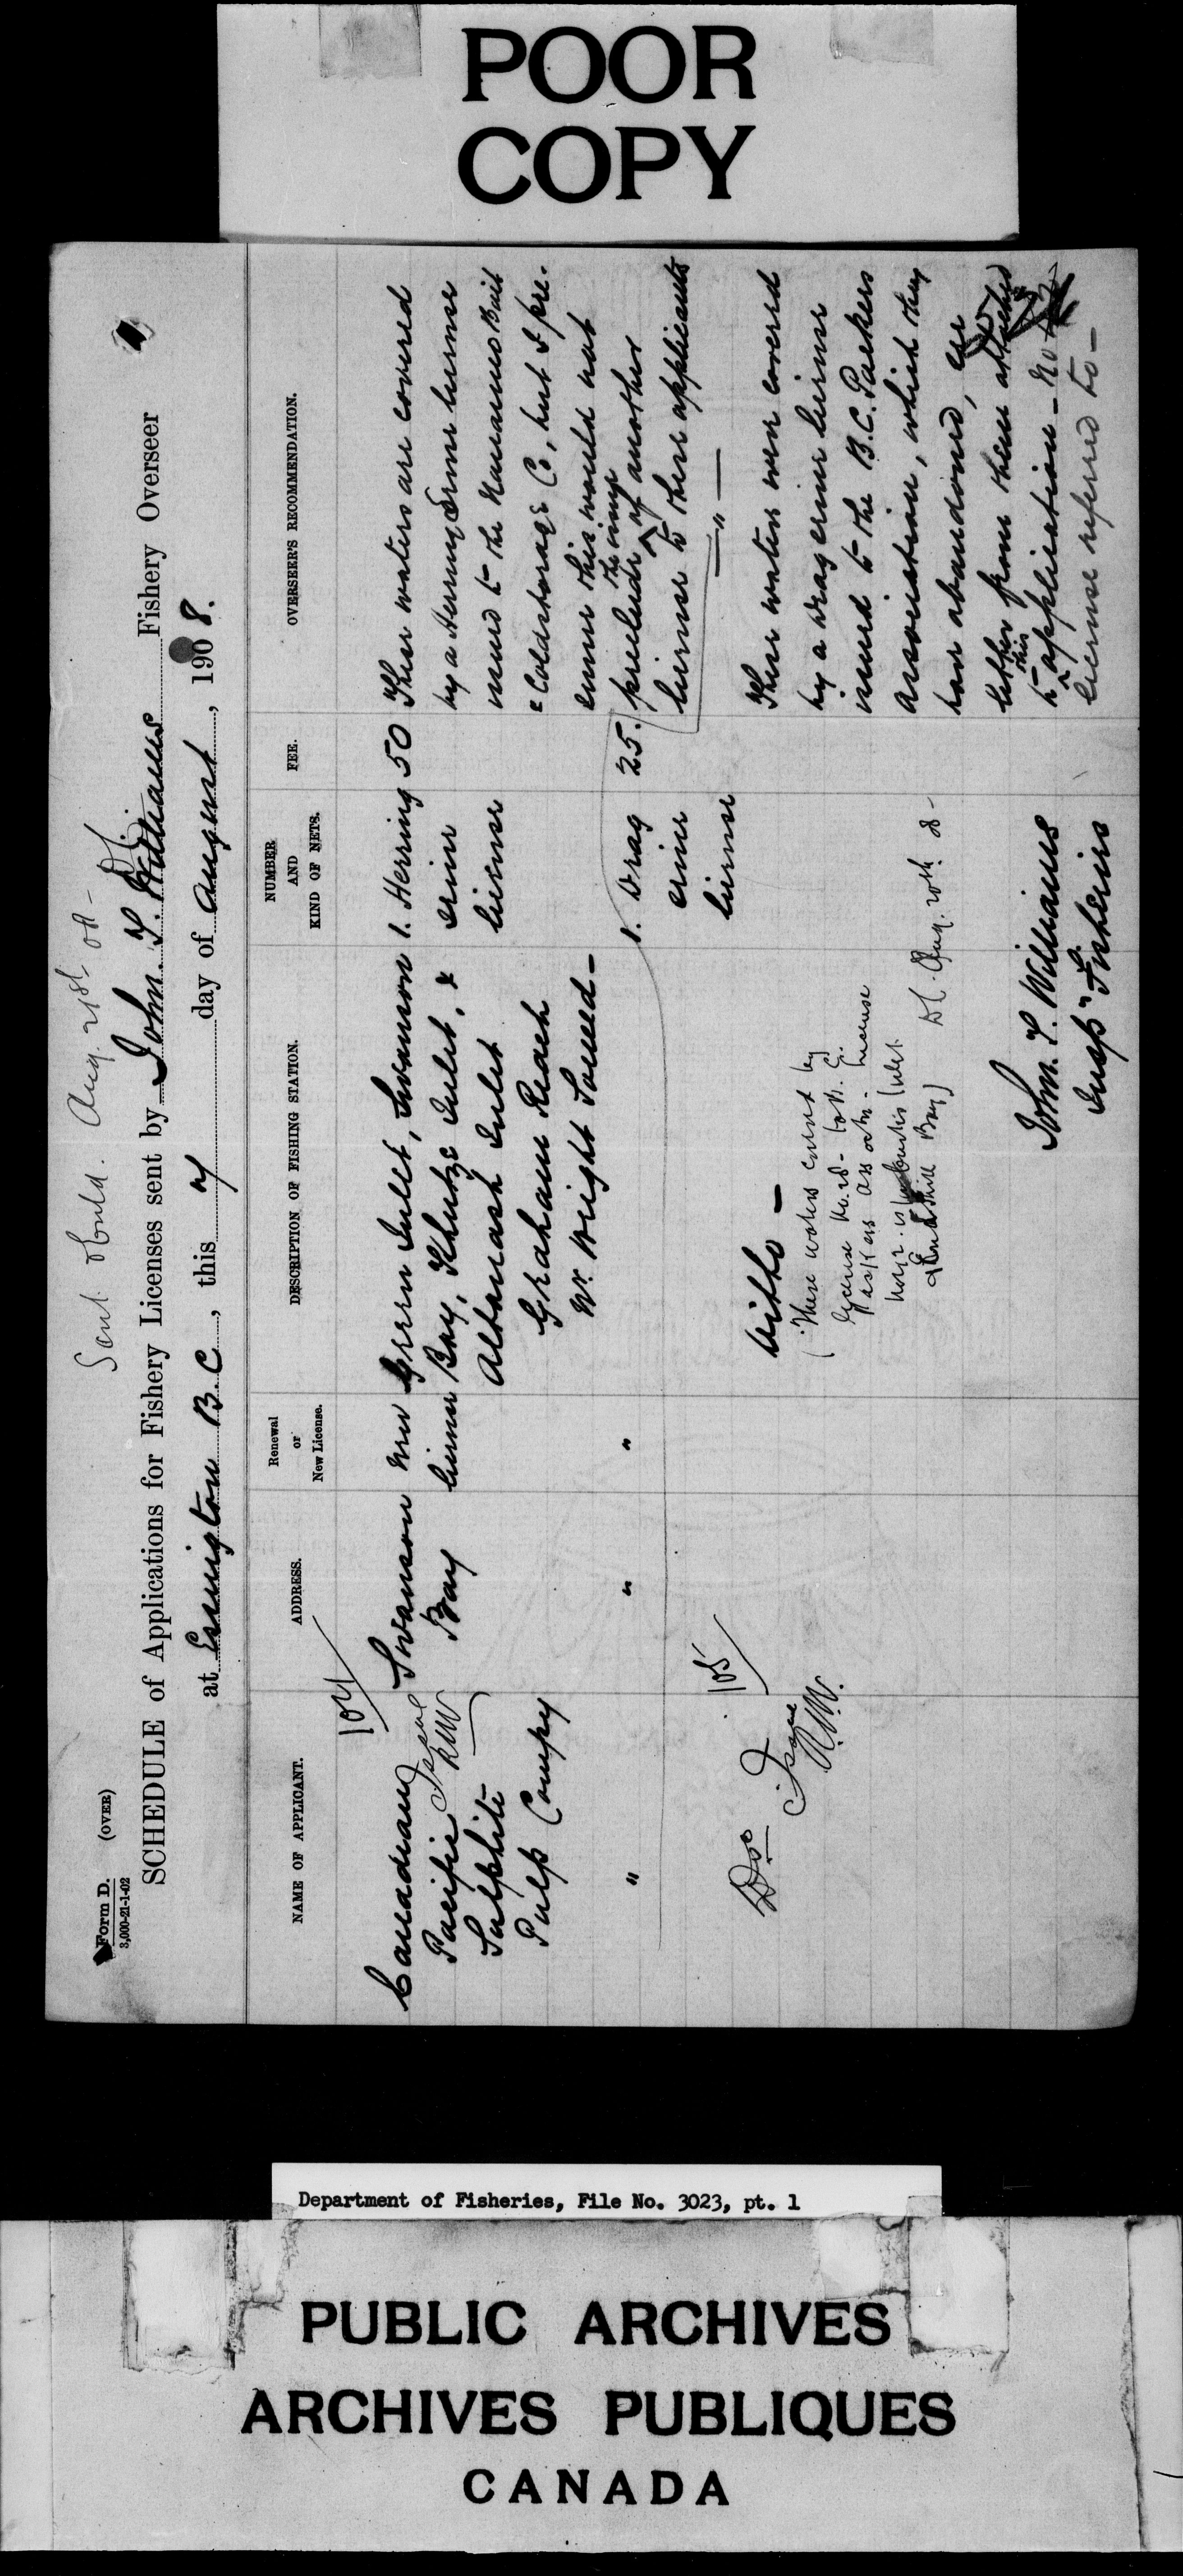 POOR
COPY
Form D. (OVER)
3,000-21-1-02
Sent Aug. 21st 08 -
SCHEDULE of Applications for Fishery Licenses sent by John. T. Williams Fishery Overseer
at Essington B.C, this 7 day of August, 1908.
NAME OF APPLICANT.
ADDRESS.
Renewal
or
New License.
DESCRIPTION OF FISHING STATION.
NUMBER
AND
KIND OF NETS.
FEE.
OVERSEER'S RECOMMENDATION.
104
Canadian
Pacific
Sulphite
Pulp Compy
Issue
R.N.V.
Swanson
Bay
New
license
Green Inlet, Swanson
Bay, Khutze Inlet, &
Altanash Inlet
Graham Reach
Wright Sound -
1. Herring
seine
license
50
These waters are covered
by a Herring Seine license
issued to the Nanaimo Bait
& Coldstorage Co, but I pre-
sume this would not
preclude the issue of another
license to these applicants
"
"
"
1. Drag
seine
license
25.
— " —
105
Do
Issue
R.N.V.
Ditto -
(These waters covered by
license No. 28 - to B.C.
Packers Assoctn. license
Bay)
Aug. 20th. 08 -
These waters were covered
by a drag seine license
issued to the B.C. Packers
Association, which they
have abandoned, see
letter from them attached
to this application - No
license referred to -
John. T. Williams
Insp. Fisheries
Department of Fisheries, File No. 3023, pt. 1
PUBLIC ARCHIVES
ARCHIVES PUBLIQUES
CANADA